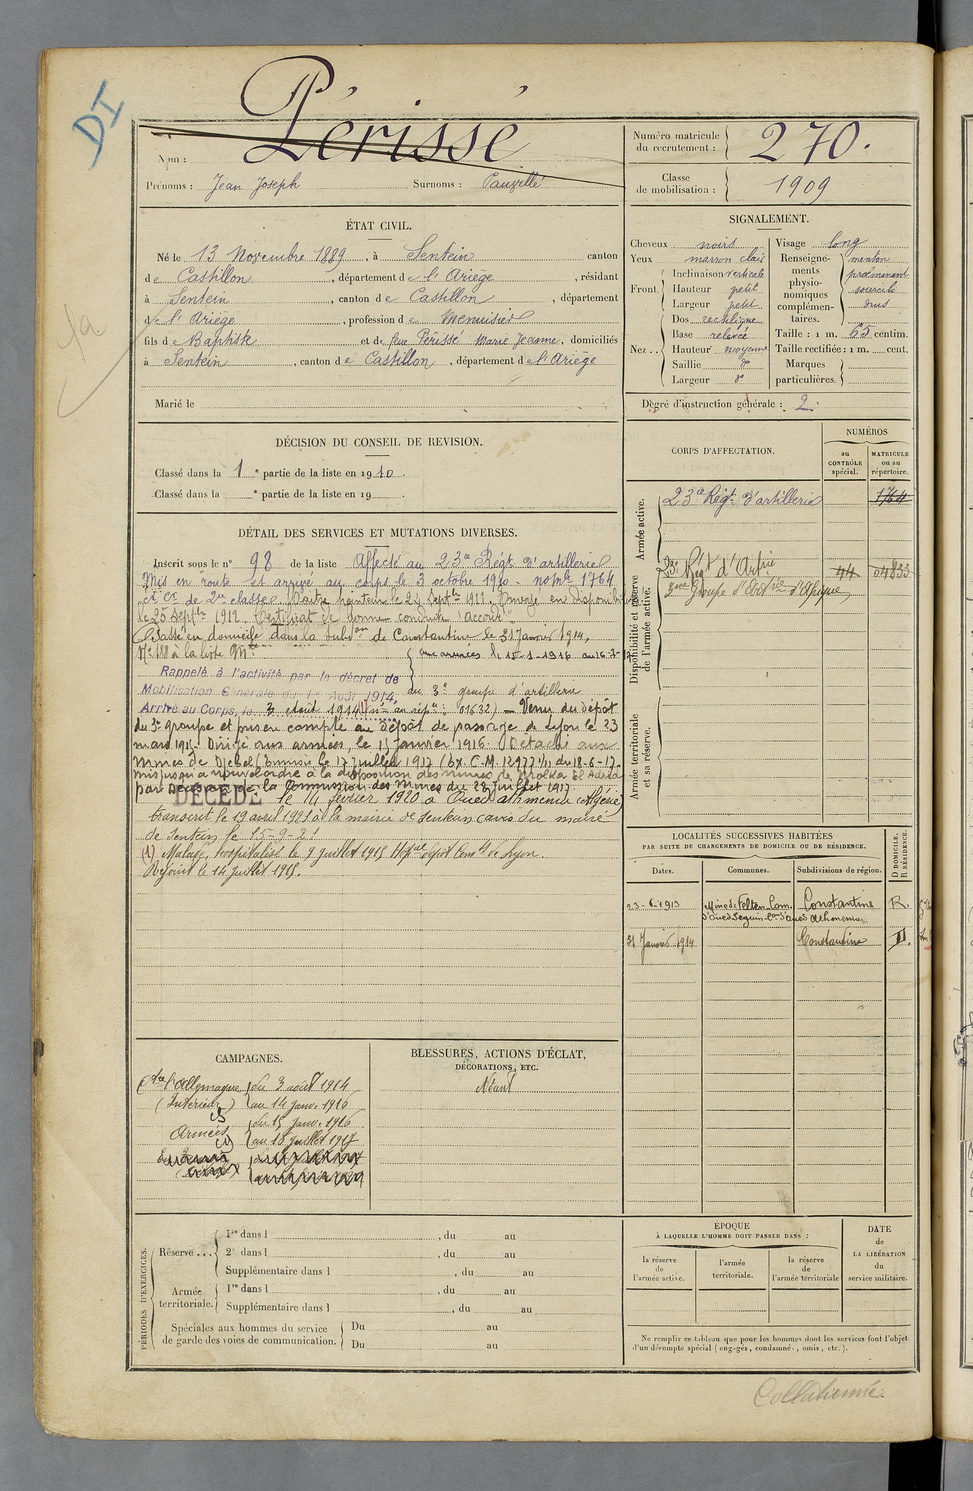 DI
Périssé
Nom :
Prénoms : Jean Joseph Surnoms :
Numéro matricule du recrutement : 270.
Classe de mobilisation : 1909
ÉTAT CIVIL.
Né le 13 Novembre 1889, à Sentein canton
de Castillon, département de l'Ariège, résidant
à Sentein, canton de Castillon, département
de l'Ariège, profession de Menuisier
fils de Baptiste et de feue Périsse Marie Jeanne, domiciliés
à Sentein, canton de Castillon, département de l'Ariège
Marié le
SIGNALEMENT.
Cheveux noirs
Yeux marron clair
Front. Inclinaison verticale
Hauteur petit
Largeur petit
Nez.. Dos rectiligne
Base relevé
Hauteur moyenne
Saillie do
Largeur do
Visage long
Renseignements physionomiques complémentaires. menton proéminent sourcils
Taille : 1 m. 65 centim.
Taille rectifiée : 1 m. cent.
Marques particulières.
Degré d'instruction générale : 2.
DÉCISION DU CONSEIL DE REVISION.
Classé dans la 1e partie de la liste en 1910.
Classé dans la e partie de la liste en 19
DÉTAIL DES SERVICES ET MUTATIONS DIVERSES.
Inscrit sous le n° 98 de la liste Affecté au 23e Régt d'artillerie
Mis en route et arrivé au corps le 3 octobre 1910 - no mle 1764
et Ct de 2me classe. Maitre pointeur le 24 Septbre 1911. Envoyé en disponibilité
le 25 Septbre 1912. Certificat de bonne conduite "accordé".
Passé en domicile dans la subdon de Constantine le 31 Janvier 1914.
N° 188 à la liste Mte
aux armées le 15-1-1916 au 16-7-17
Rappelé à l'activité par le décret de
Mobilisation Générale du 1er Août 1914,
au 3e groupe d'artillerie
Arrivé au Corps, le 3 Août 1914 (1) (no au répre: 01632) - Venu du dépôt
du 3e groupe et pris en compte au dépôt de passage de Lyon le 23
mars 1915. Dirigé aux armées, le 15 janvier 1916. Détaché aux
mines de Djebel (Tunisie) le 17 juillet 1917 (Ex. C.M. 12977 1/11 du 18-6-17.
mis jusqu'à nouvel ordre à la disposition des mines de Mokta El Hadid
par décision de la Commission des Mines du 28 juillet 1917.
DÉCÉDÉ le 14 février 1920 à Oued Athmenia (Algérie)
transcrit le 19 avril 1921 à la mairie de Sentein (avis du maire
de Sentein le 15-9-21
(1) Malade, hospitalisé le 9 juillet 1915 Hôpal dépôt Comt de Lyon.
Rejoint le 14 juillet 1915.
CORPS D'AFFECTATION.
NUMÉROS
au CONTRÔLE spécial.
MATRICULE ou au répertoire.
Armée active.
23e Régt d'artillerie 1764
Disponibilité et réserve de l'armée active.
23e Régt d'Artrie 44 04833
3eme Groupe d'Artrie d'Afrique
Armée territoriale et sa réserve.
LOCALITÉS SUCCESSIVES HABITÉES
PAR SUITE DE CHANGEMENTS DE DOMICILE OU DE RÉSIDENCE.
Dates. Communes. Subdivisions de région. D DOMICILE. R RÉSIDENCE.
23-6-1913 Mine de Felten Com. d'Oued Seguin Con d'Oued Athmenia Constantine R.
31 Janvier 1914 Constantine D.
CAMPAGNES.
Ctre l'Allemagne du 3 août 1914
(Intérieur) au 14 janv. 1916
Armées du 15 janv. 1916
au 16 juillet 1917
BLESSURES, ACTIONS D'ÉCLAT,
DÉCORATIONS, ETC.
Néant
PÉRIODES D'EXERCICES.
Réserve... 1re dans l , du au
2e dans l , du au
Supplémentaire dans l , du au
Armée territoriale. 1re dans l , du au
Supplémentaire dans l , du au
Spéciales aux hommes du service de garde des voies de communication. Du au
Du au
ÉPOQUE
À LAQUELLE L'HOMME DOIT PASSER DANS :
la réserve de l'armée active.
l'armée territoriale.
la réserve de l'armée territoriale
DATE de LA LIBÉRATION du service militaire.
Ne remplir ce tableau que pour les hommes dont les services font l'objet
d'un décompte spécial (engagés, condamnés, omis, etc.).
Collationnée.